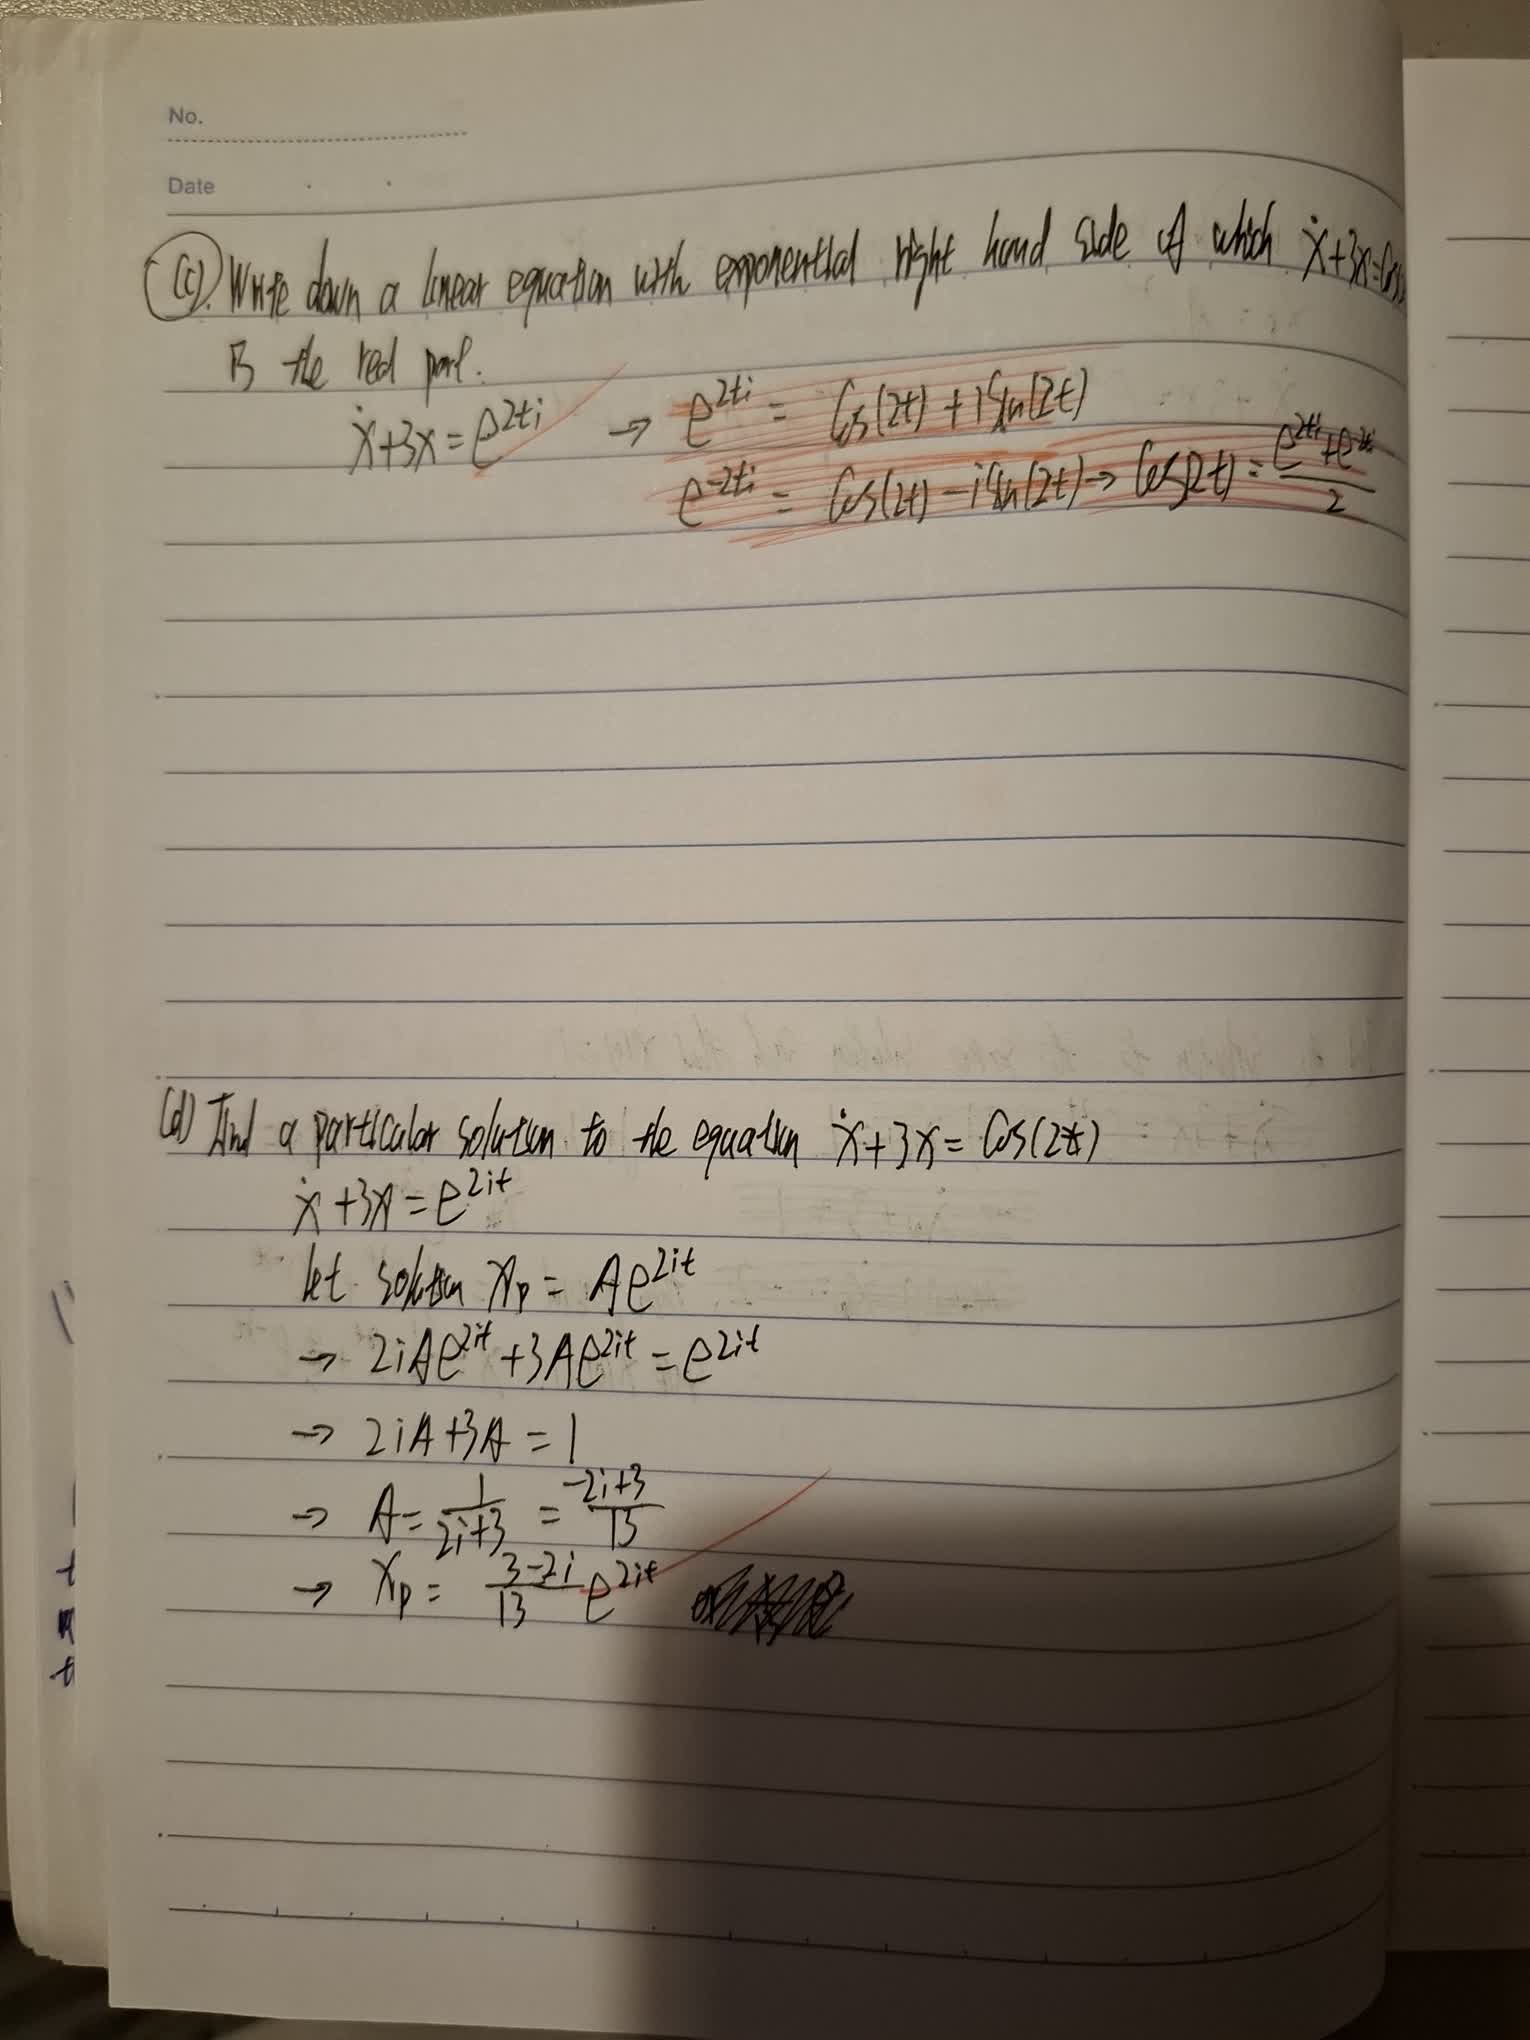 No.
Date
(c). Write down a linear equation with exponential right hand side of which ẋ+3x=Cos
is the real part.
ẋ+3x=e^{2ti} → e^{2ti} = Cos(2t)+iSin(2t)
e^{-2ti} = Cos(2t)-iSin(2t) → Cos(2t) = \frac{e^{2ti}+e^{-2ti}}{2}
(d) Find a particular solution to the equation ẋ+3x = Cos(2t)
ẋ+3x=e^{2it}
let solution x_p = Ae^{2it}
→ 2iAe^{2it}+3Ae^{2it}=e^{2it}
→ 2iA+3A=1
→ A=\frac{1}{2i+3} = \frac{-2i+3}{13}
→ x_p = \frac{3-2i}{13}e^{2it}